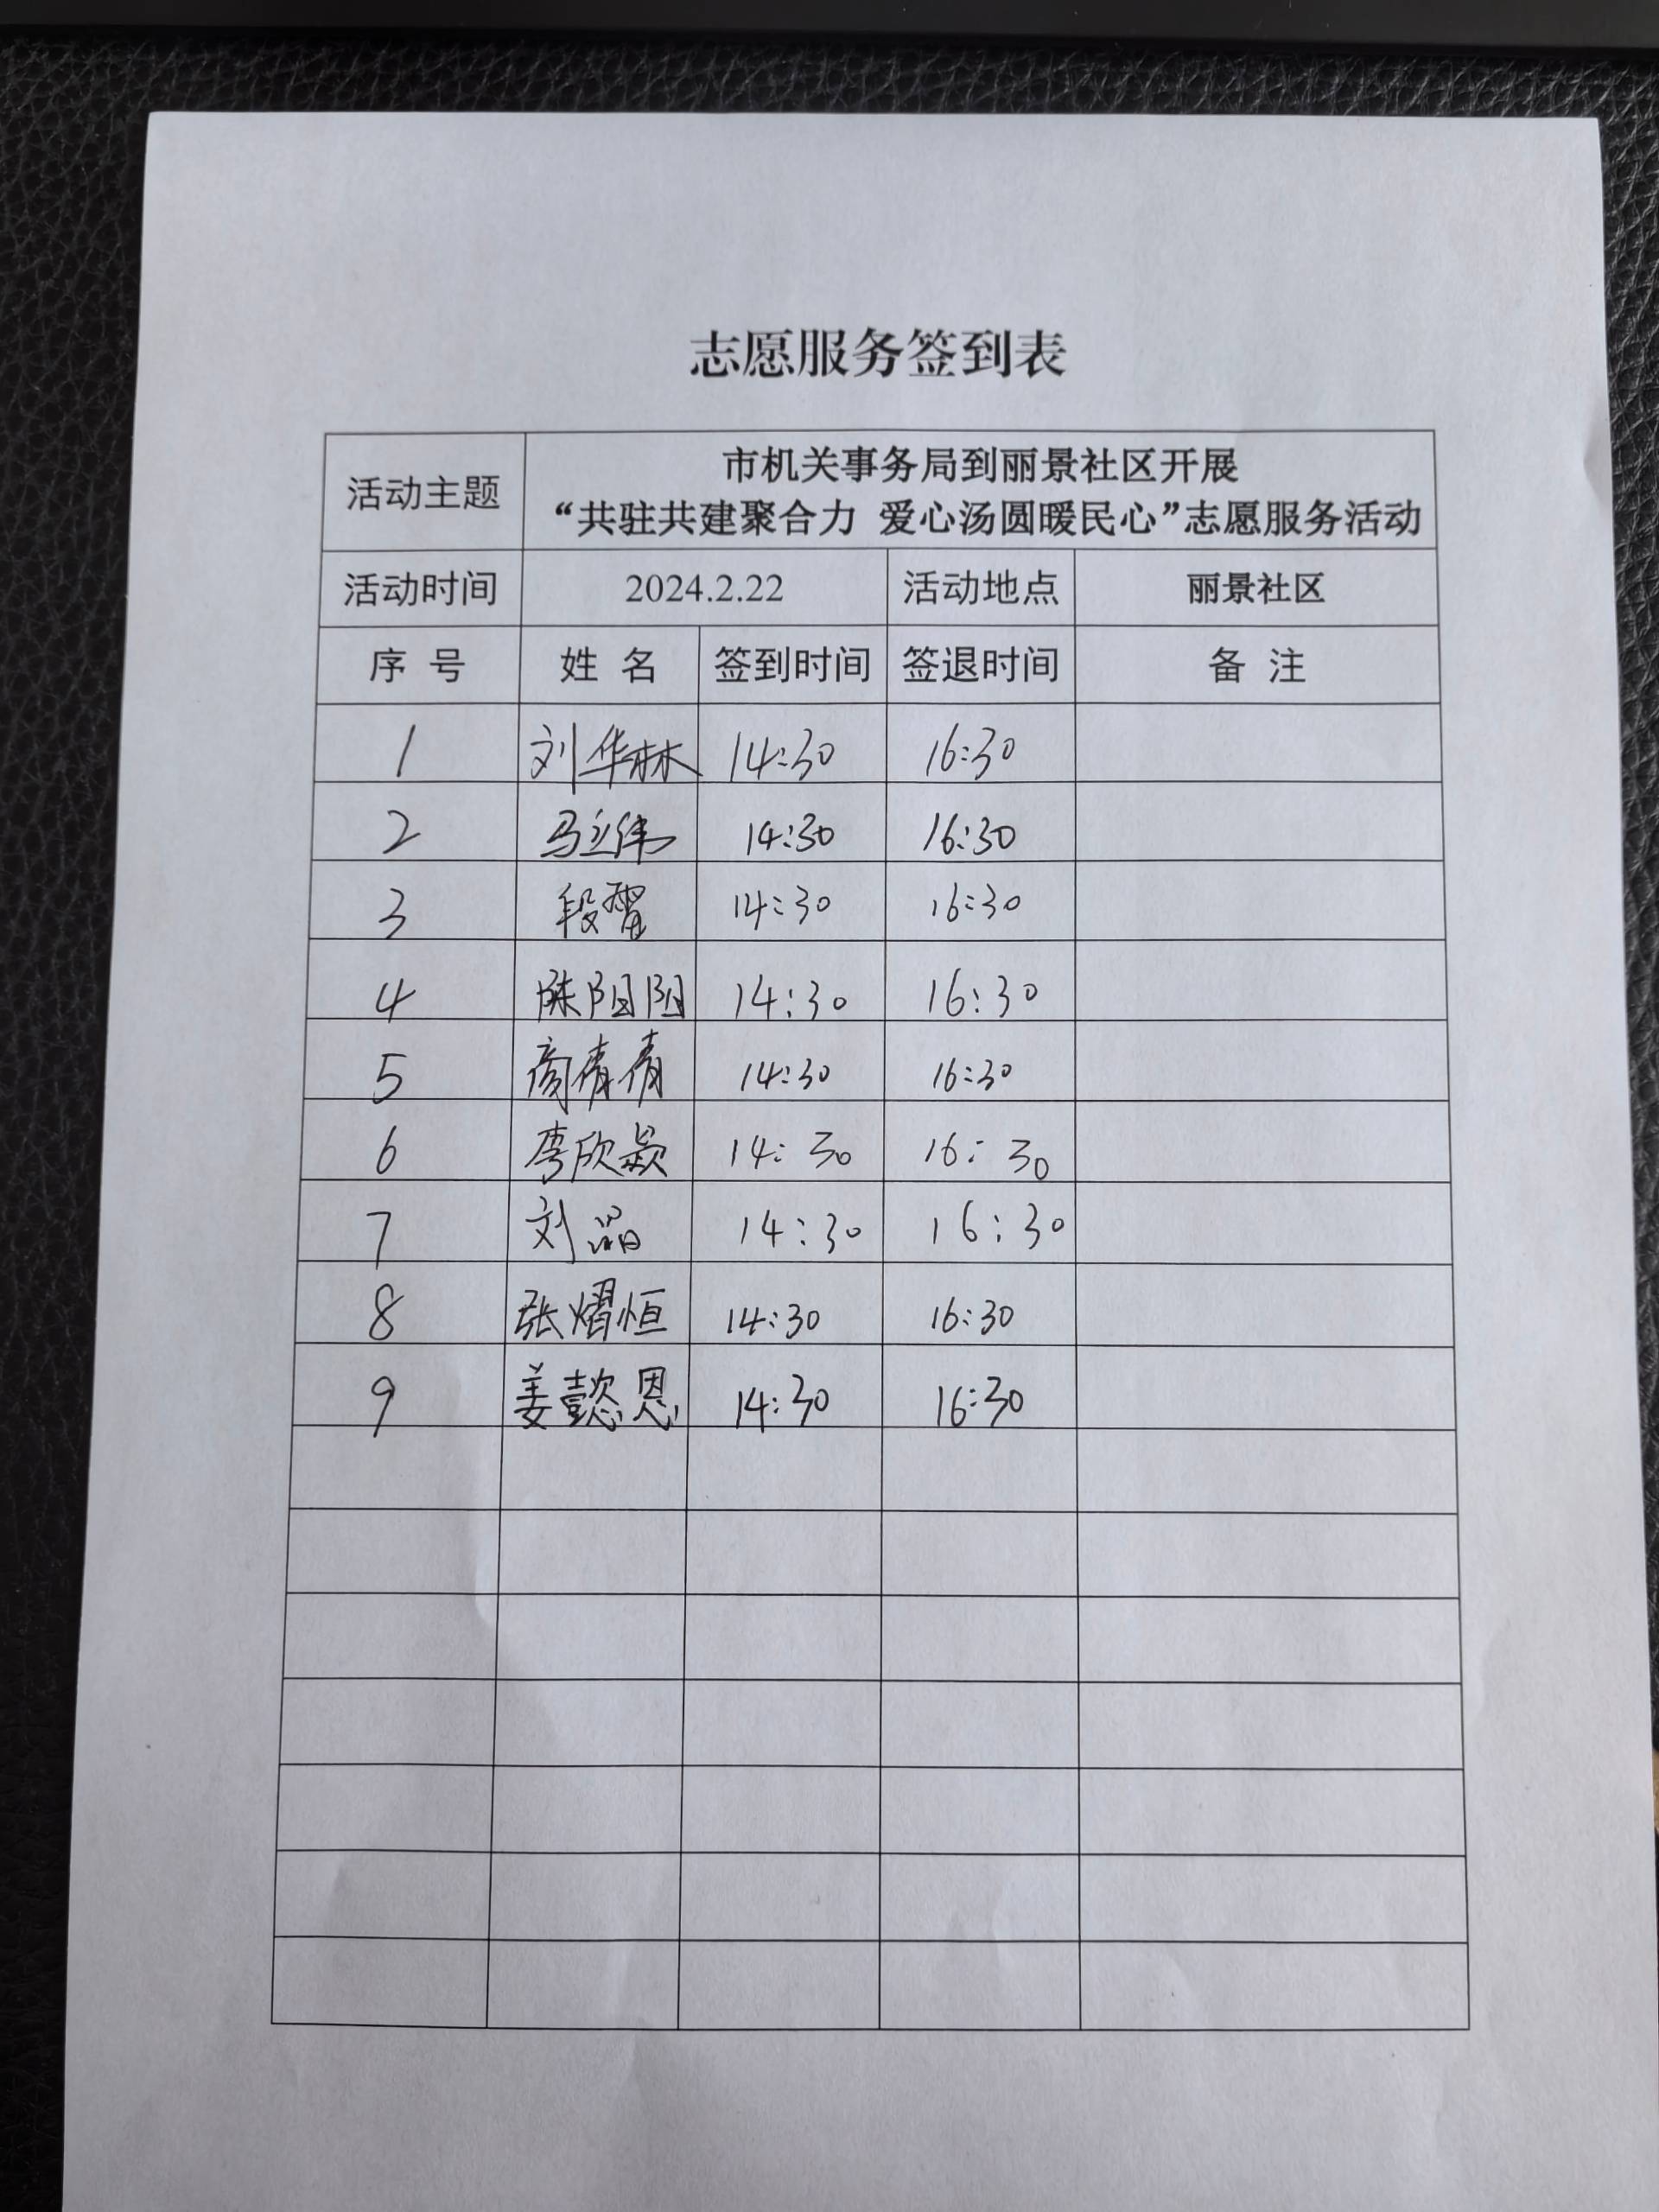 志愿服务签到表
活动主题
市机关事务局到丽景社区开展
“共驻共建聚合力 爱心汤圆暖民心”志愿服务活动
活动时间 2024.2.22 活动地点 丽景社区
序 号 姓 名 签到时间 签退时间 备 注
1 刘华林 14:30 16:30
2 马立伟 14:30 16:30
3 段 14:30 16:30
4 陈阳阳 14:30 16:30
5 青青 14:30 16:30
6 李欣颖 14:30 16:30
7 刘晶 14:30 16:30
8 张熠恒 14:30 16:30
9 姜懿恩 14:30 16:30